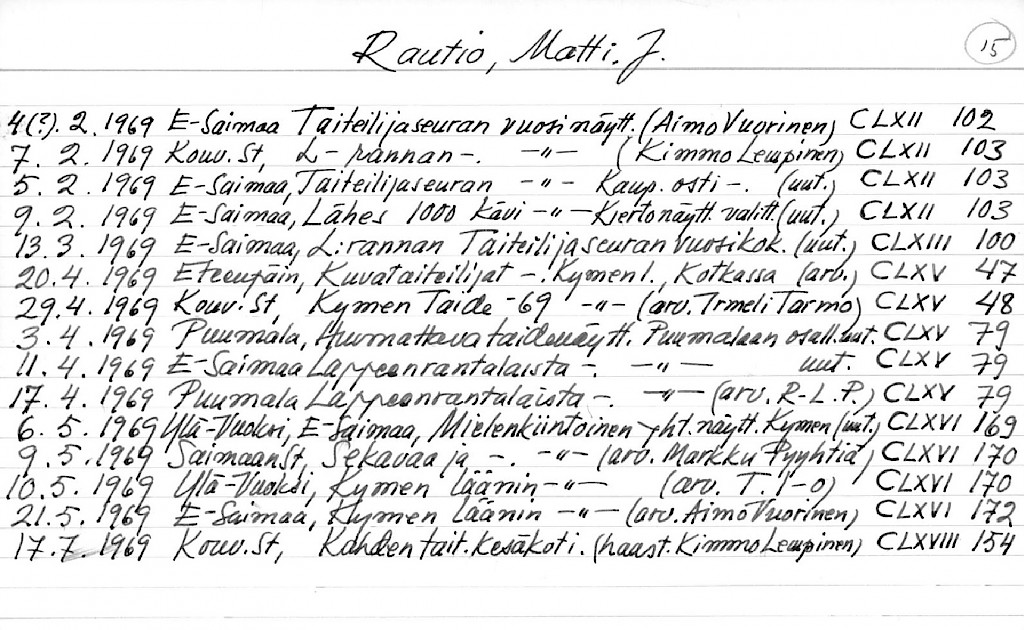 Rautio, Matti. J.
15
4(?). 2. 1969 E-Saimaa Taiteilijaseuran vuosinäytt. (Aimo Vuorinen) CLXII 102
7. 2. 1969 Kouv. St, L-rannan -. -"- (Kimmo Lempinen) CLXII 103
5. 2. 1969 E-Saimaa, Taiteilijaseuran -"- Kaup. osti -. (uut.) CLXII 103
9. 2. 1969 E-Saimaa, Lähes 1000 kävi -"- Kiertonäytt. valitt. (uut.) CLXII 103
13. 3. 1969 E-Saimaa, L:rannan Taiteilijaseuran vuosikok. (uut.) CLXIII 100
20. 4. 1969 Eteenpäin, Kuvataiteilijat -. Kymenl., Kotkassa (arv.) CLXV 47
29. 4. 1969 Kouv. St, Kymen Taide -69 -"- (arv. Irmeli Tarmo) CLXV 48
3. 4. 1969 Puumala, Huomattava taidenäytt. Puumalaan osall. uut. CLXV 79
11. 4. 1969 E-Saimaa Lappeenrantalaista -. -"- uut. CLXV 79
17. 4. 1969 Puumala Lappeenrantalaista -. -"- (arv. R-L.P.) CLXV 79
6. 5. 1969 Ylä-Vuoksi, E-Saimaa, Mielenkiintoinen yht. näytt. Kymen (uut.) CLXVI 169
9. 5. 1969 Saimaan St, Sekavaa ja -. -"- (arv. Markku Pyyhtiä) CLXVI 170
10. 5. 1969 Ylä-Vuoksi, Kymen läänin -"- (arv. T. I-o) CLXVI 170
21. 5. 1969 E-Saimaa, Kymen läänin -"- (arv. Aimo Vuorinen) CLXVI 172
17. 7. 1969 Kouv. St, Kahden tait. kesäkoti. (haast. Kimmo Lempinen) CLXVIII 154